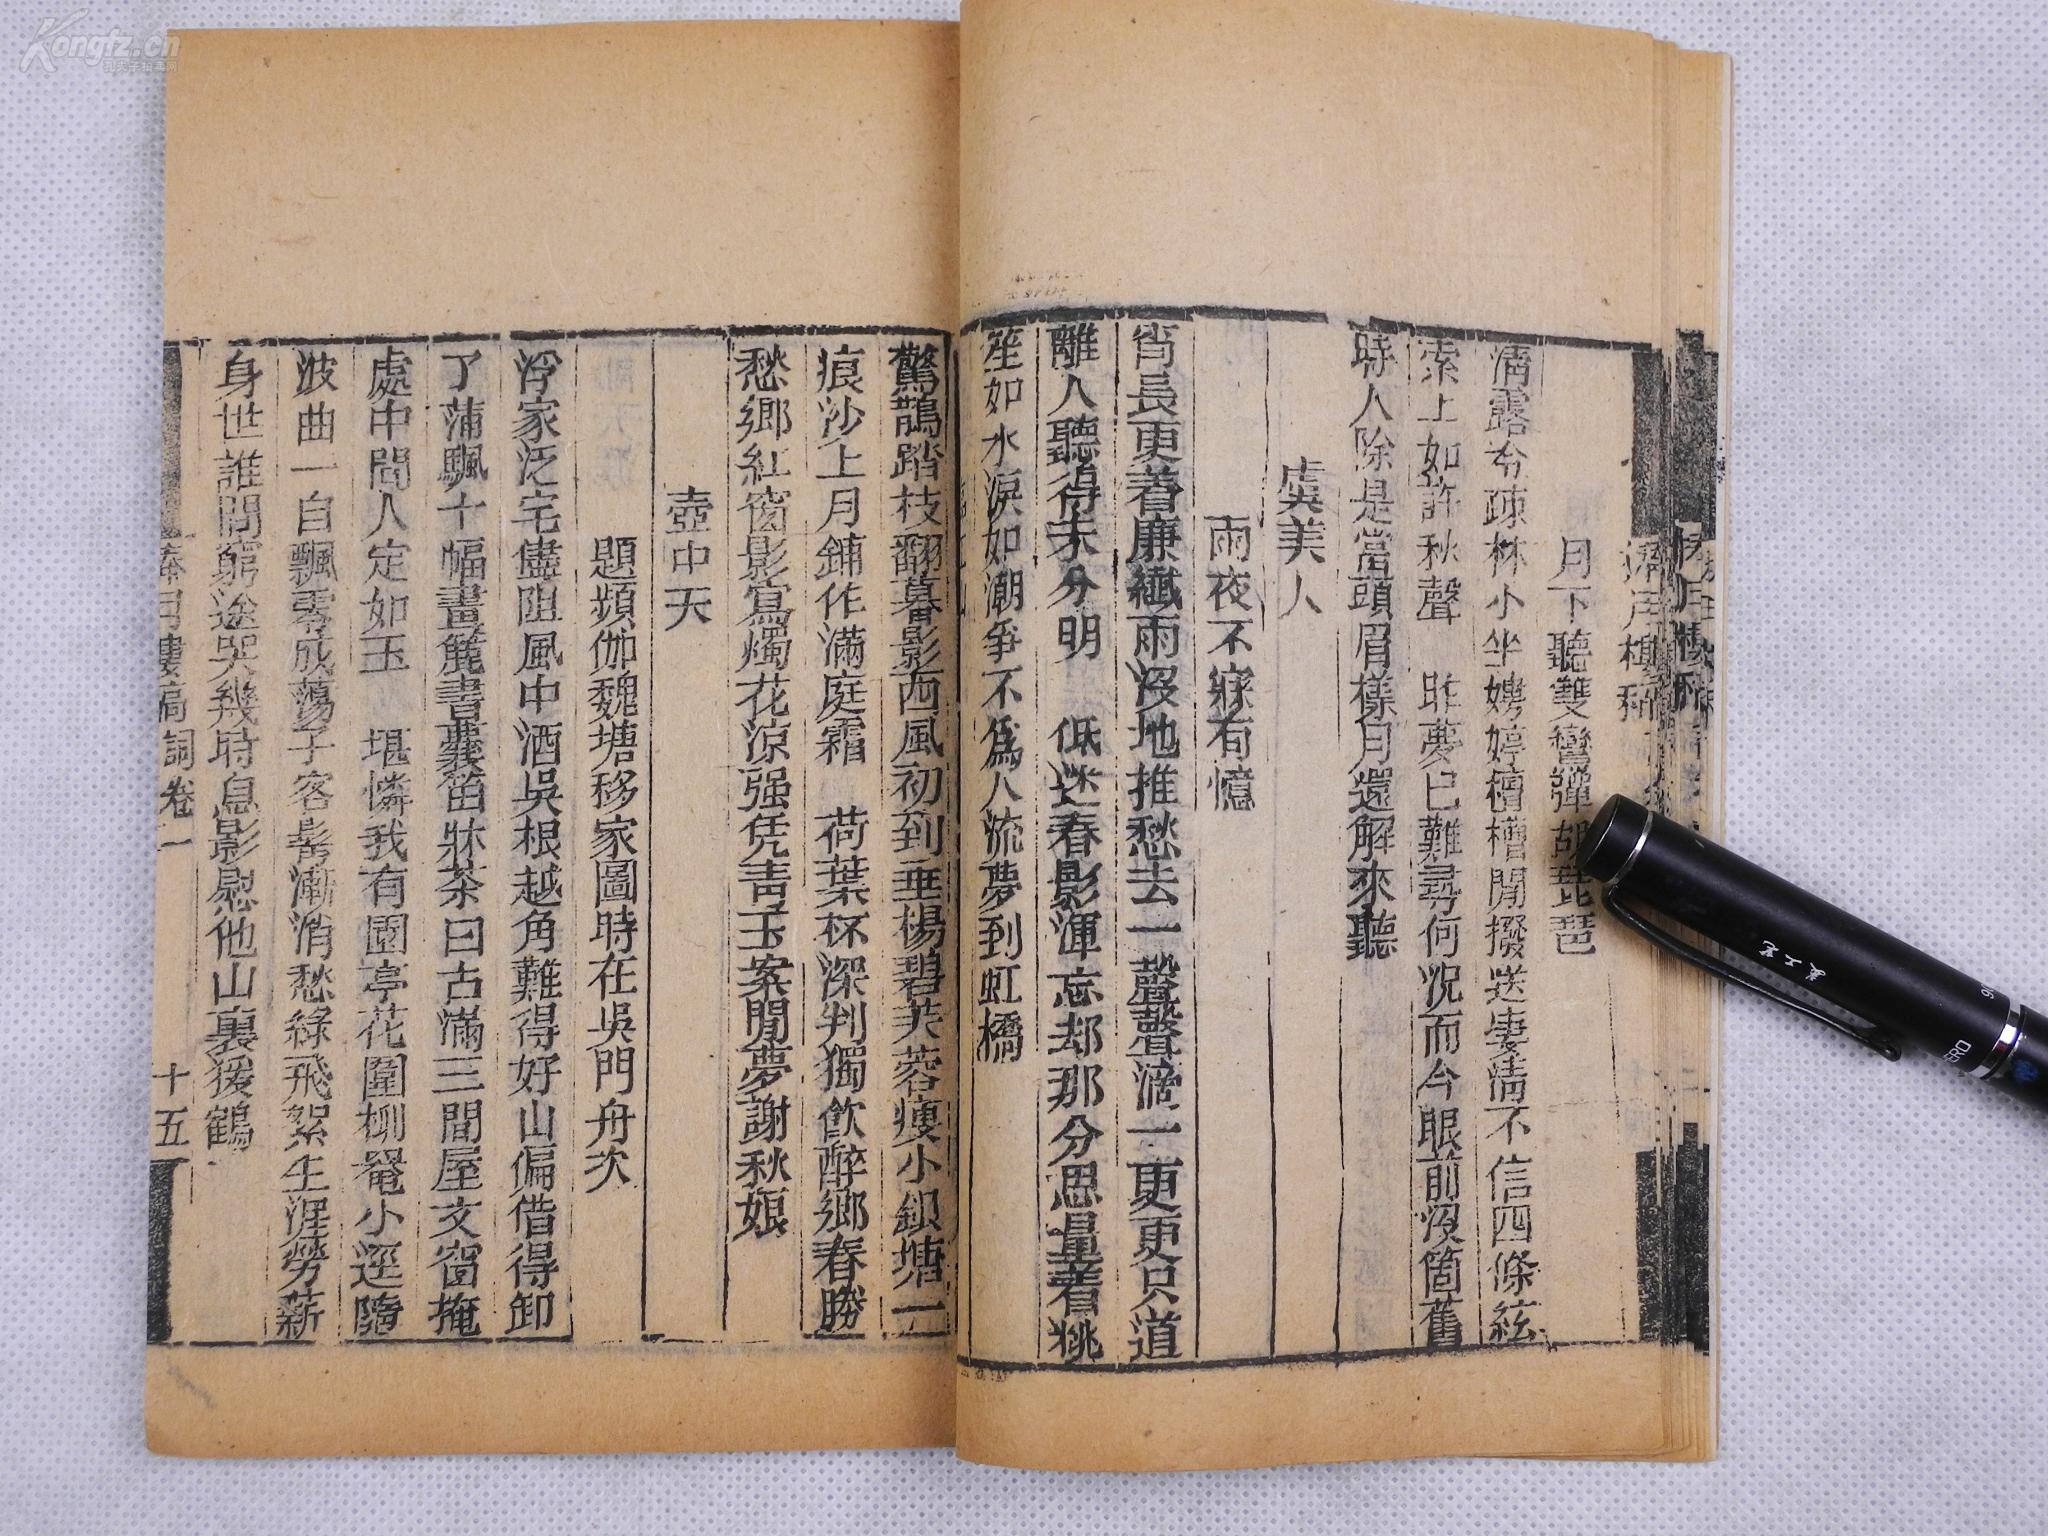 月下聽雙鬟彈胡琵琶
清露泠疎林小坐娉婷檀槽閒撥送淒清不信四條絃
索上如許秋聲　昨夢已難尋何況而今眼前沒箇舊
時人除是當頭眉樣月還解來聽
虞美人
雨夜不寐有憶
宵長更着廉纖雨沒地推愁去一聲聲滴一更更只道
離人聽得未分明　低迷春影渾忘却那分思量着狣
笙如水淚如潮爭不爲人流夢到虹橋
驚鵲踏枝翻暮影西風初到垂楊碧芙蓉瘦小銀塘一
痕沙上月鋪作滿庭霜　荷葉杯深判獨飲醉鄉春勝
愁鄉紅窗影寫燭花涼强凭靑玉案閒夢謝秋娘
壺中天
題頻伽魏塘移家圖時在吳門舟次
浮家泛宅儘阻風中酒吳根越角難得好山偏借得卸
了蒲颿十幅畫簏書囊笛牀茶臼古滿三間屋文窗掩
處中間人定如玉　堪憐我有園亭花圍柳罨小逕隨
波曲一自飄零成蕩子客髩漸消愁綠飛絮生涯勞薪
身世誰問窮途哭幾時息影慰他山裏猨鶴
捧月樓稿詞卷一
十五
Kongfz.cn
孔夫子拍卖网
美工笔
HERO